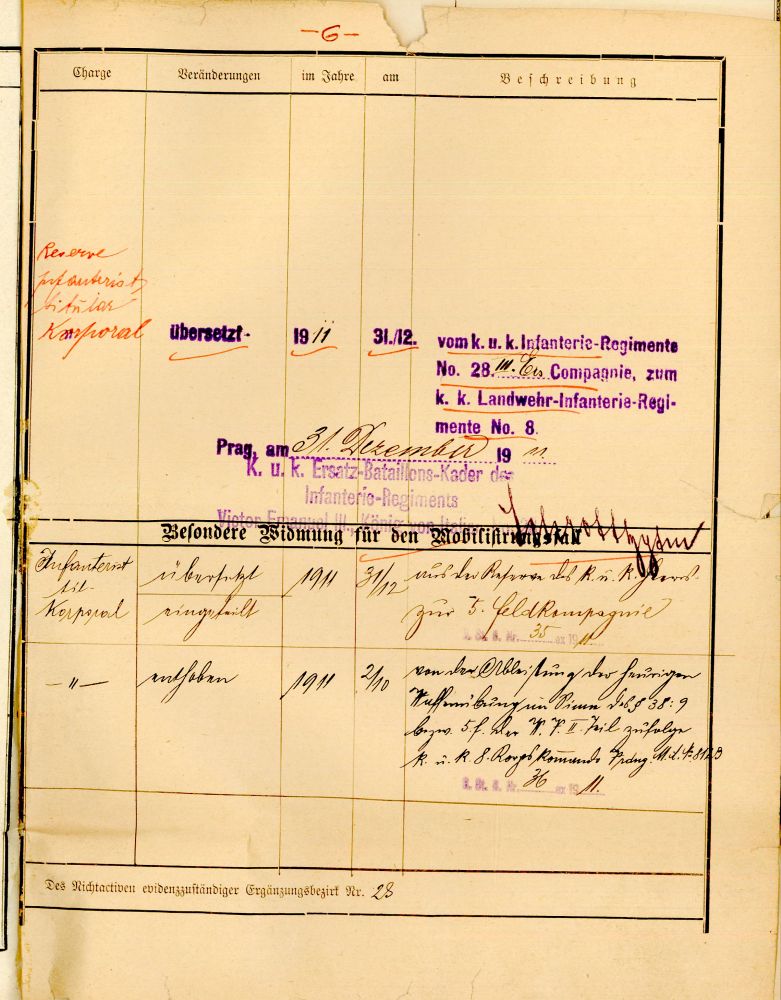 -6-
Charge Veränderungen im Jahre am Beschreibung
Reserve
Infanterist,
titular
Korporal übersetzt 1911 31./12. vom k. u. k. Infanterie-Regimente
No. 28. III. Ers Compagnie, zum
k. k. Landwehr-Infanterie-Regi-
mente No. 8.
Prag, am 31. Dezember 19 11.
K. u. k. Ersatz-Bataillons-Kader des
Infanterie-Regiments
Victor Emanuel III., König von Italien
Besondere Widmung für den Mobilisierungsfall
Infanterist übersetzt 1911 31/12 aus der Reserve des k. u. k. Heeres
tit. eingeteilt zur 5. Feldkompagnie
Korporal
Nr. 35 ex 1911
-"- enthoben 1911 2/10 von der Ableistung der heurigen
Waffenübung im Sinne des § 38:9
bezw. 5 f. der W. V. II. Teil zufolge
k. u. k. 8. Korpskommando
Nr. 36 ex 1911.
Des Nichtactiven evidenzzuständiger Ergänzungsbezirk Nr. 28